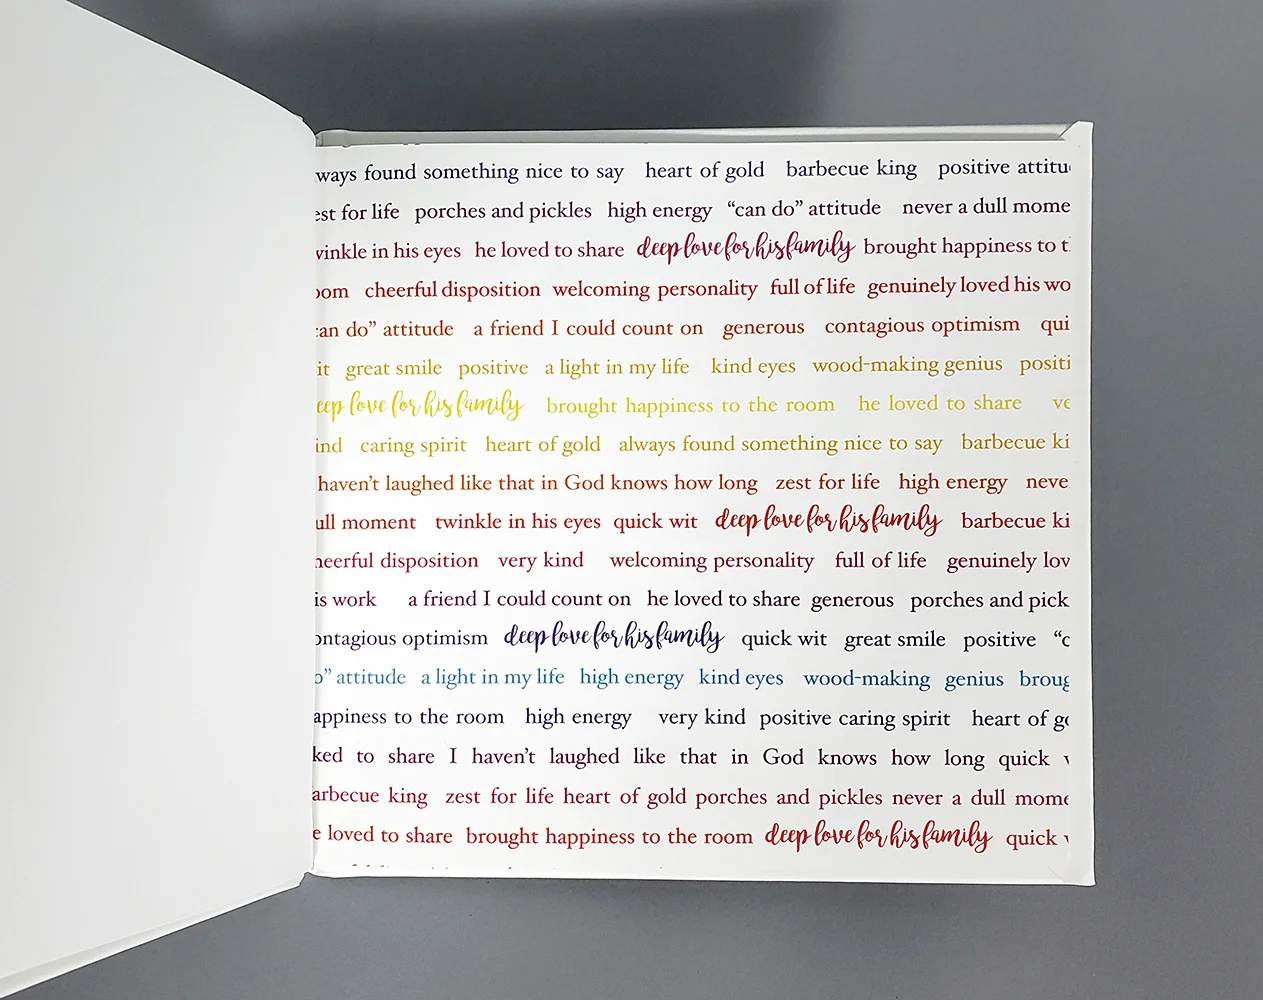 ways found something nice to say heart of gold barbecue king positive attitu
est for life porches and pickles high energy “can do” attitude never a dull mome
winkle in his eyes he loved to share deep love for his family brought happiness to t
oom cheerful disposition welcoming personality full of life genuinely loved his wo
can do” attitude a friend I could count on generous contagious optimism qui
it great smile positive a light in my life kind eyes wood-making genius positi
eep love for his family brought happiness to the room he loved to share ve
ind caring spirit heart of gold always found something nice to say barbecue ki
haven’t laughed like that in God knows how long zest for life high energy neve
ull moment twinkle in his eyes quick wit deep love for his family barbecue ki
heerful disposition very kind welcoming personality full of life genuinely lov
is work a friend I could count on he loved to share generous porches and pick
ontagious optimism deep love for his family quick wit great smile positive “c
o” attitude a light in my life high energy kind eyes wood-making genius broug
appiness to the room high energy very kind positive caring spirit heart of go
ked to share I haven’t laughed like that in God knows how long quick
arbecue king zest for life heart of gold porches and pickles never a dull mome
e loved to share brought happiness to the room deep love for his family quick